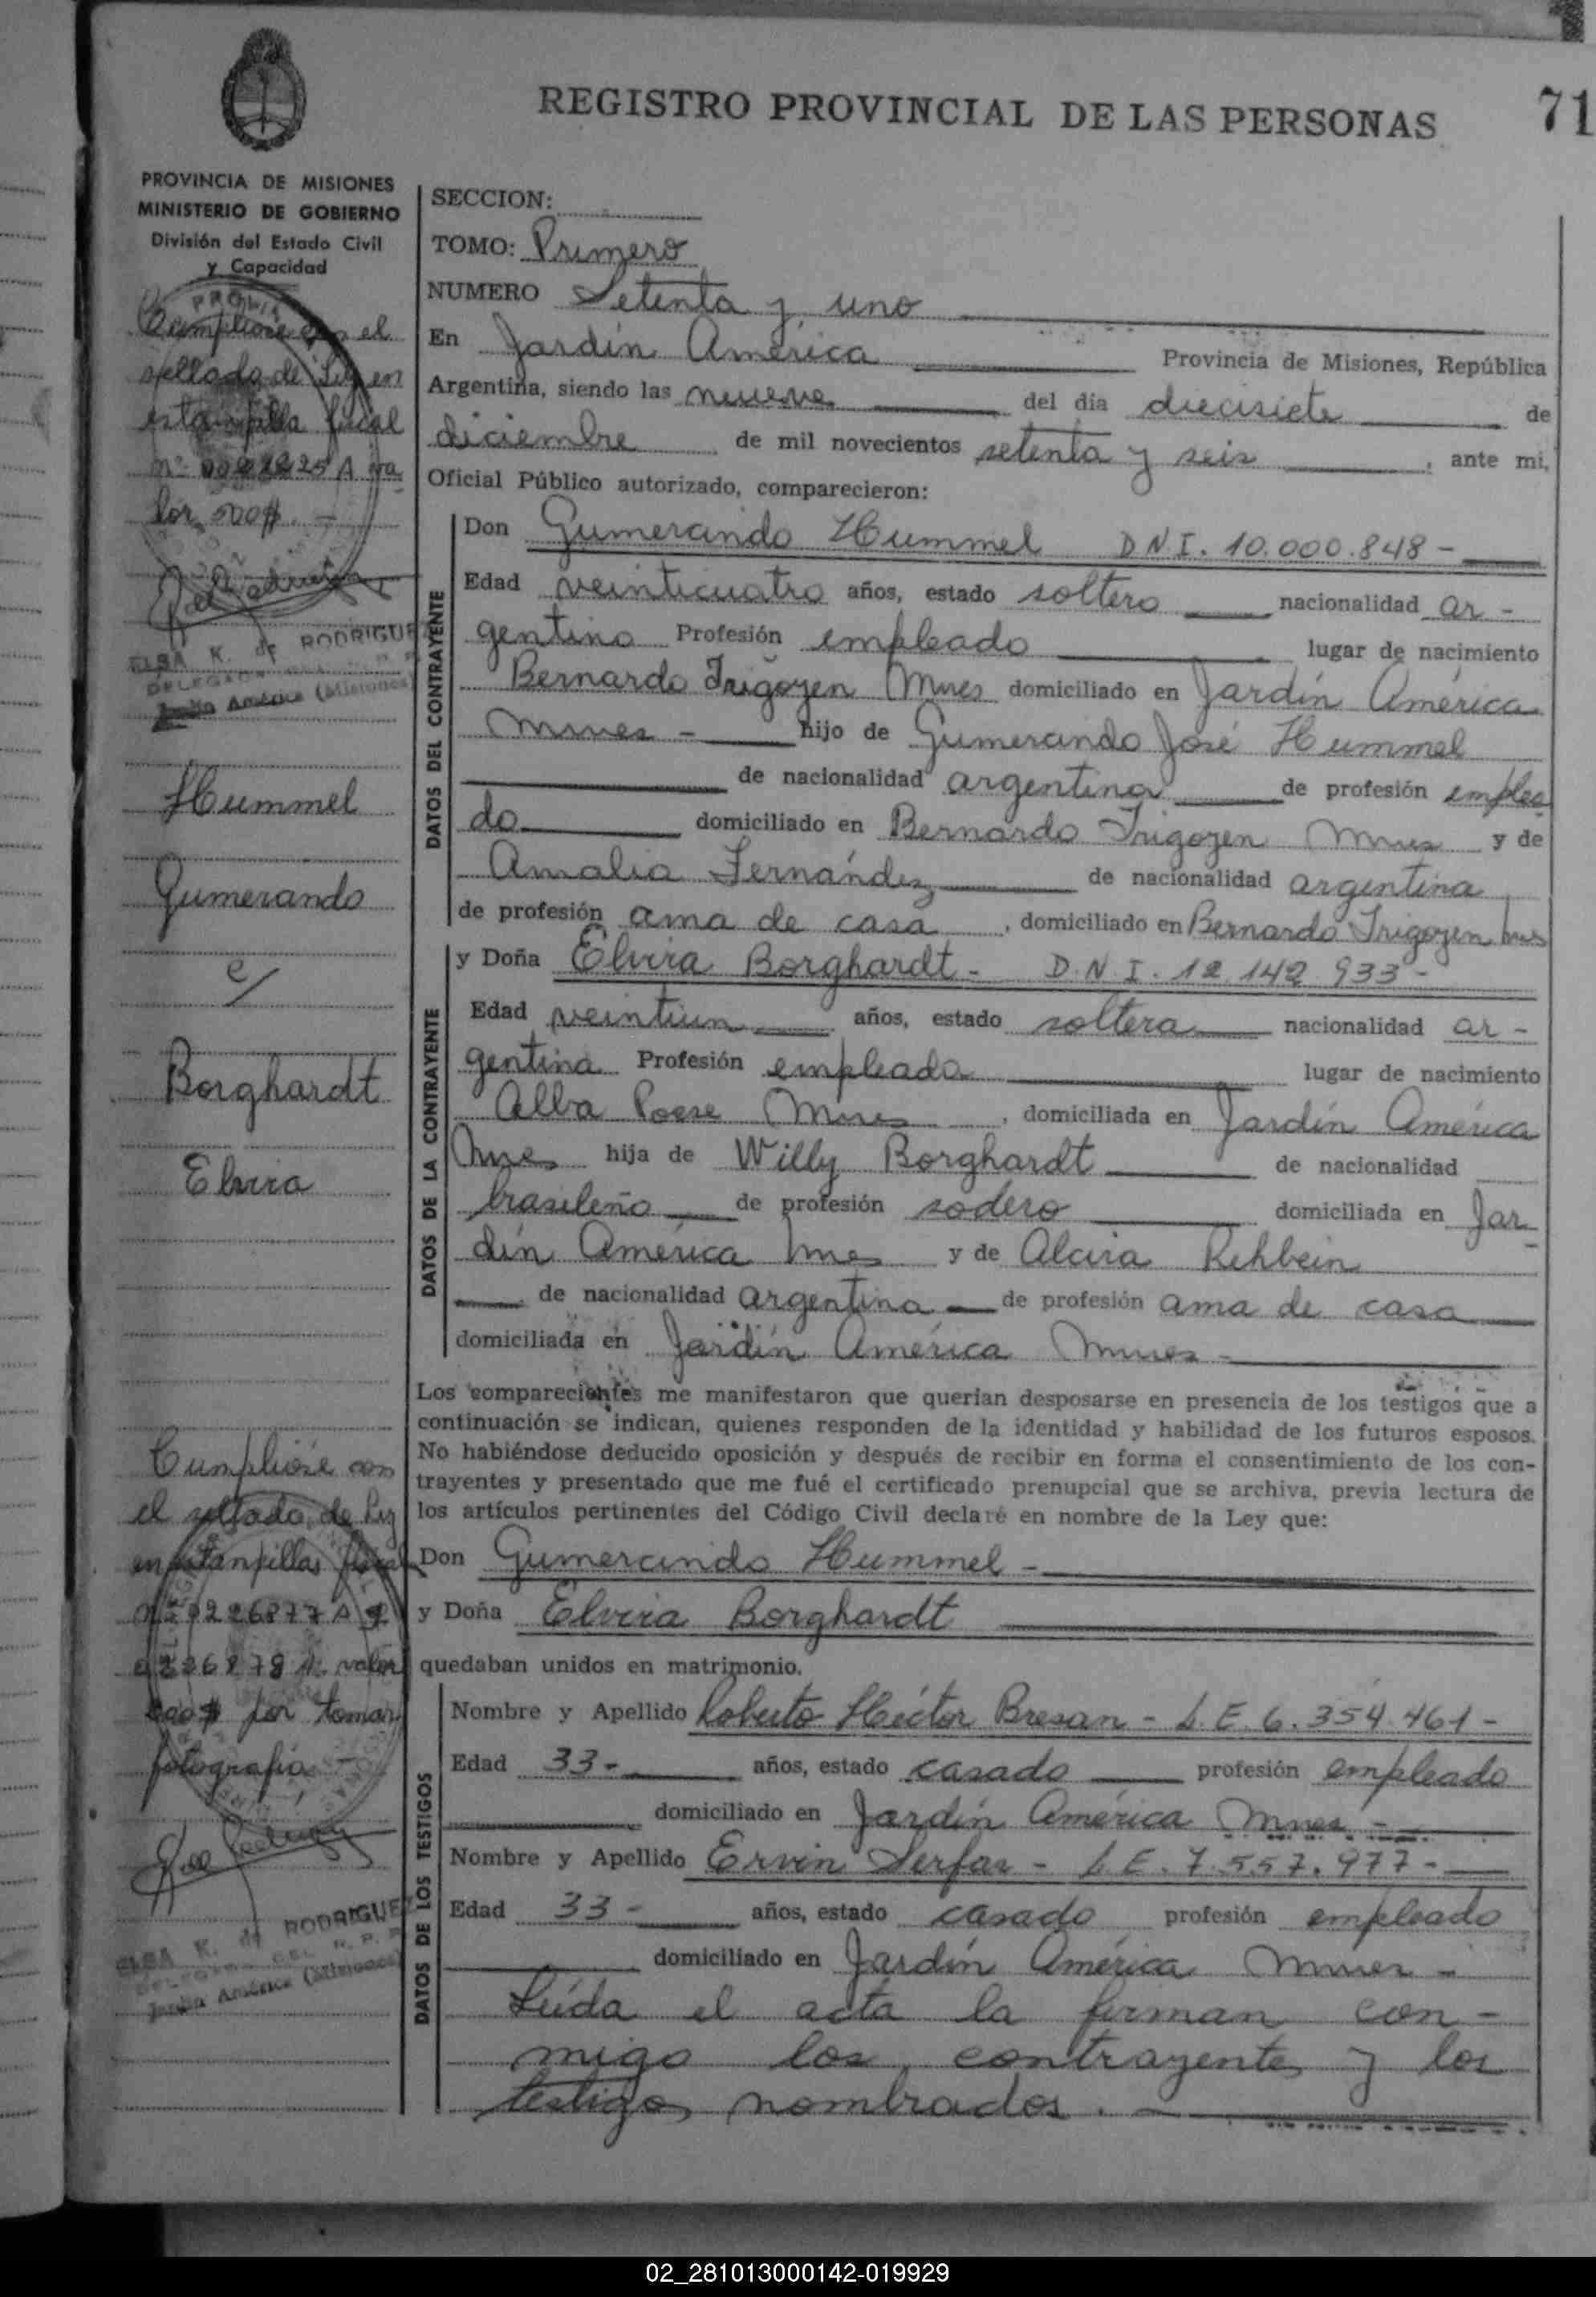 REGISTRO PROVINCIAL DE LAS PERSONAS
71
PROVINCIA DE MISIONES
MINISTERIO DE GOBIERNO
División del Estado Civil
y Capacidad
Cumplióse con el
sellado de Ley en
estampilla fiscal
lor 500$. -
ELBA K. de RODRIGUEZ
Jardín América (Misiones)
Hummel
Gumerando
c/
Borghardt
Elvira
Cumplióse con
el sellado de Ley
en estampillas fiscal
por tomar
fotografía -
ELBA K. de RODRIGUEZ
DELEGADA DEL R. P. P.
Jardín América (Misiones)
SECCION:
TOMO: Primero
NUMERO Setenta y uno
En Jardín América Provincia de Misiones, República
Argentina, siendo las nueve del día diecisiete de
diciembre de mil novecientos setenta y seis , ante mi,
Oficial Público autorizado, comparecieron:
DATOS DEL CONTRAYENTE
Don Gumerando Hummel D.N.I. 10.000.848 -
Edad veinticuatro años, estado soltero nacionalidad ar -
gentino Profesión empleado lugar de nacimiento
Bernardo Irigoyen Mnes domiciliado en Jardín América
Mnes - hijo de Gumerando José Hummel
de nacionalidad argentina de profesión emplea
do domiciliado en Bernardo Irigoyen Mnes y de
Amalia Fernández de nacionalidad argentina
de profesión ama de casa , domiciliado en Bernardo Irigoyen Mnes
DATOS DE LA CONTRAYENTE
y Doña Elvira Borghardt - D.N.I. 12.142.933 -
Edad veintiun años, estado soltera nacionalidad ar -
gentina Profesión empleada lugar de nacimiento
Alba Posse Mnes , domiciliada en Jardín América
Mnes hija de Willy Borghardt de nacionalidad
brasileño de profesión sodero domiciliada en Jar
dín América Mnes y de Alcira Rehbein
de nacionalidad argentina de profesión ama de casa
domiciliada en Jardín América Mnes -
Los comparecientes me manifestaron que querian desposarse en presencia de los testigos que a
continuación se indican, quienes responden de la identidad y habilidad de los futuros esposos.
No habiéndose deducido oposición y después de recibir en forma el consentimiento de los con-
trayentes y presentado que me fué el certificado prenupcial que se archiva, previa lectura de
los artículos pertinentes del Código Civil declaré en nombre de la Ley que:
Don Gumerando Hummel -
y Doña Elvira Borghardt
quedaban unidos en matrimonio.
DATOS DE LOS TESTIGOS
Nombre y Apellido Roberto Héctor Bresan - L.E. 6.354.461 -
Edad 33 - años, estado casado profesión empleado
domiciliado en Jardín América Mnes -
Nombre y Apellido Ervin Serfas - L.E. 7.557.977 -
Edad 33 - años, estado casado profesión empleado
domiciliado en Jardín América Mnes -
Leída el acta la firman con -
migo los contrayentes y los
testigos nombrados . -
02_281013000142-019929